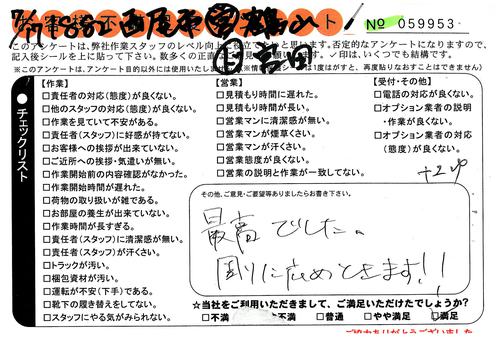 No 059953
このアンケートは、弊社作業スタッフのレベル向上に役立て
と思います。否定的なアンケートになりますので、
記入後シールを上に貼って下さい。数多くの正直
つけても結構です。
※このアンケートは、アンケート目的以外には使用いたしま
シールは1度はがすと、再度貼りなおすことはできません)
チェックリスト
【作業】
□責任者の対応(態度)が良くない。
□他のスタッフの対応(態度)が良くない。
□作業を見ていて不安がある。
□責任者(スタッフ)に好感が持てない。
□お客様への挨拶が出来ていない。
□ご近所への挨拶・気遣いが無い。
□作業開始前の内容確認がなかった。
□作業開始時間が遅れた。
□荷物の取り扱いが雑である。
□お部屋の養生が出来ていない。
□作業時間が長すぎる。
□責任者(スタッフ)に清潔感が無い。
□責任者(スタッフ)が汗くさい。
□トラックが汚い。
□梱包資材が汚い。
□運転が不安(下手)である。
□靴下の履き替えをしてない。
□スタッフにやる気がみられない。
【営業】
□見積もり時間に遅れた。
□見積もり時間が長い。
□営業マンに清潔感が無い。
□営業マンが煙草くさい。
□営業マンが汗くさい。
□営業態度が良くない。
□営業の説明と作業が一致してない。
【受付・その他】
□電話の対応が良くない。
□オプション業者の説明
・作業が良くない。
□オプション業者の対応
(態度)が良くない。
+2up
その他、ご意見・ご要望等ありましたらお書き下さい。
最高でした。
周りに広めときます!!
☆当社をご利用いただきまして、ご満足いただけたでしょうか?
□不満 不満 □普通 □やや満足 □満足
ご協力ありがとうございました